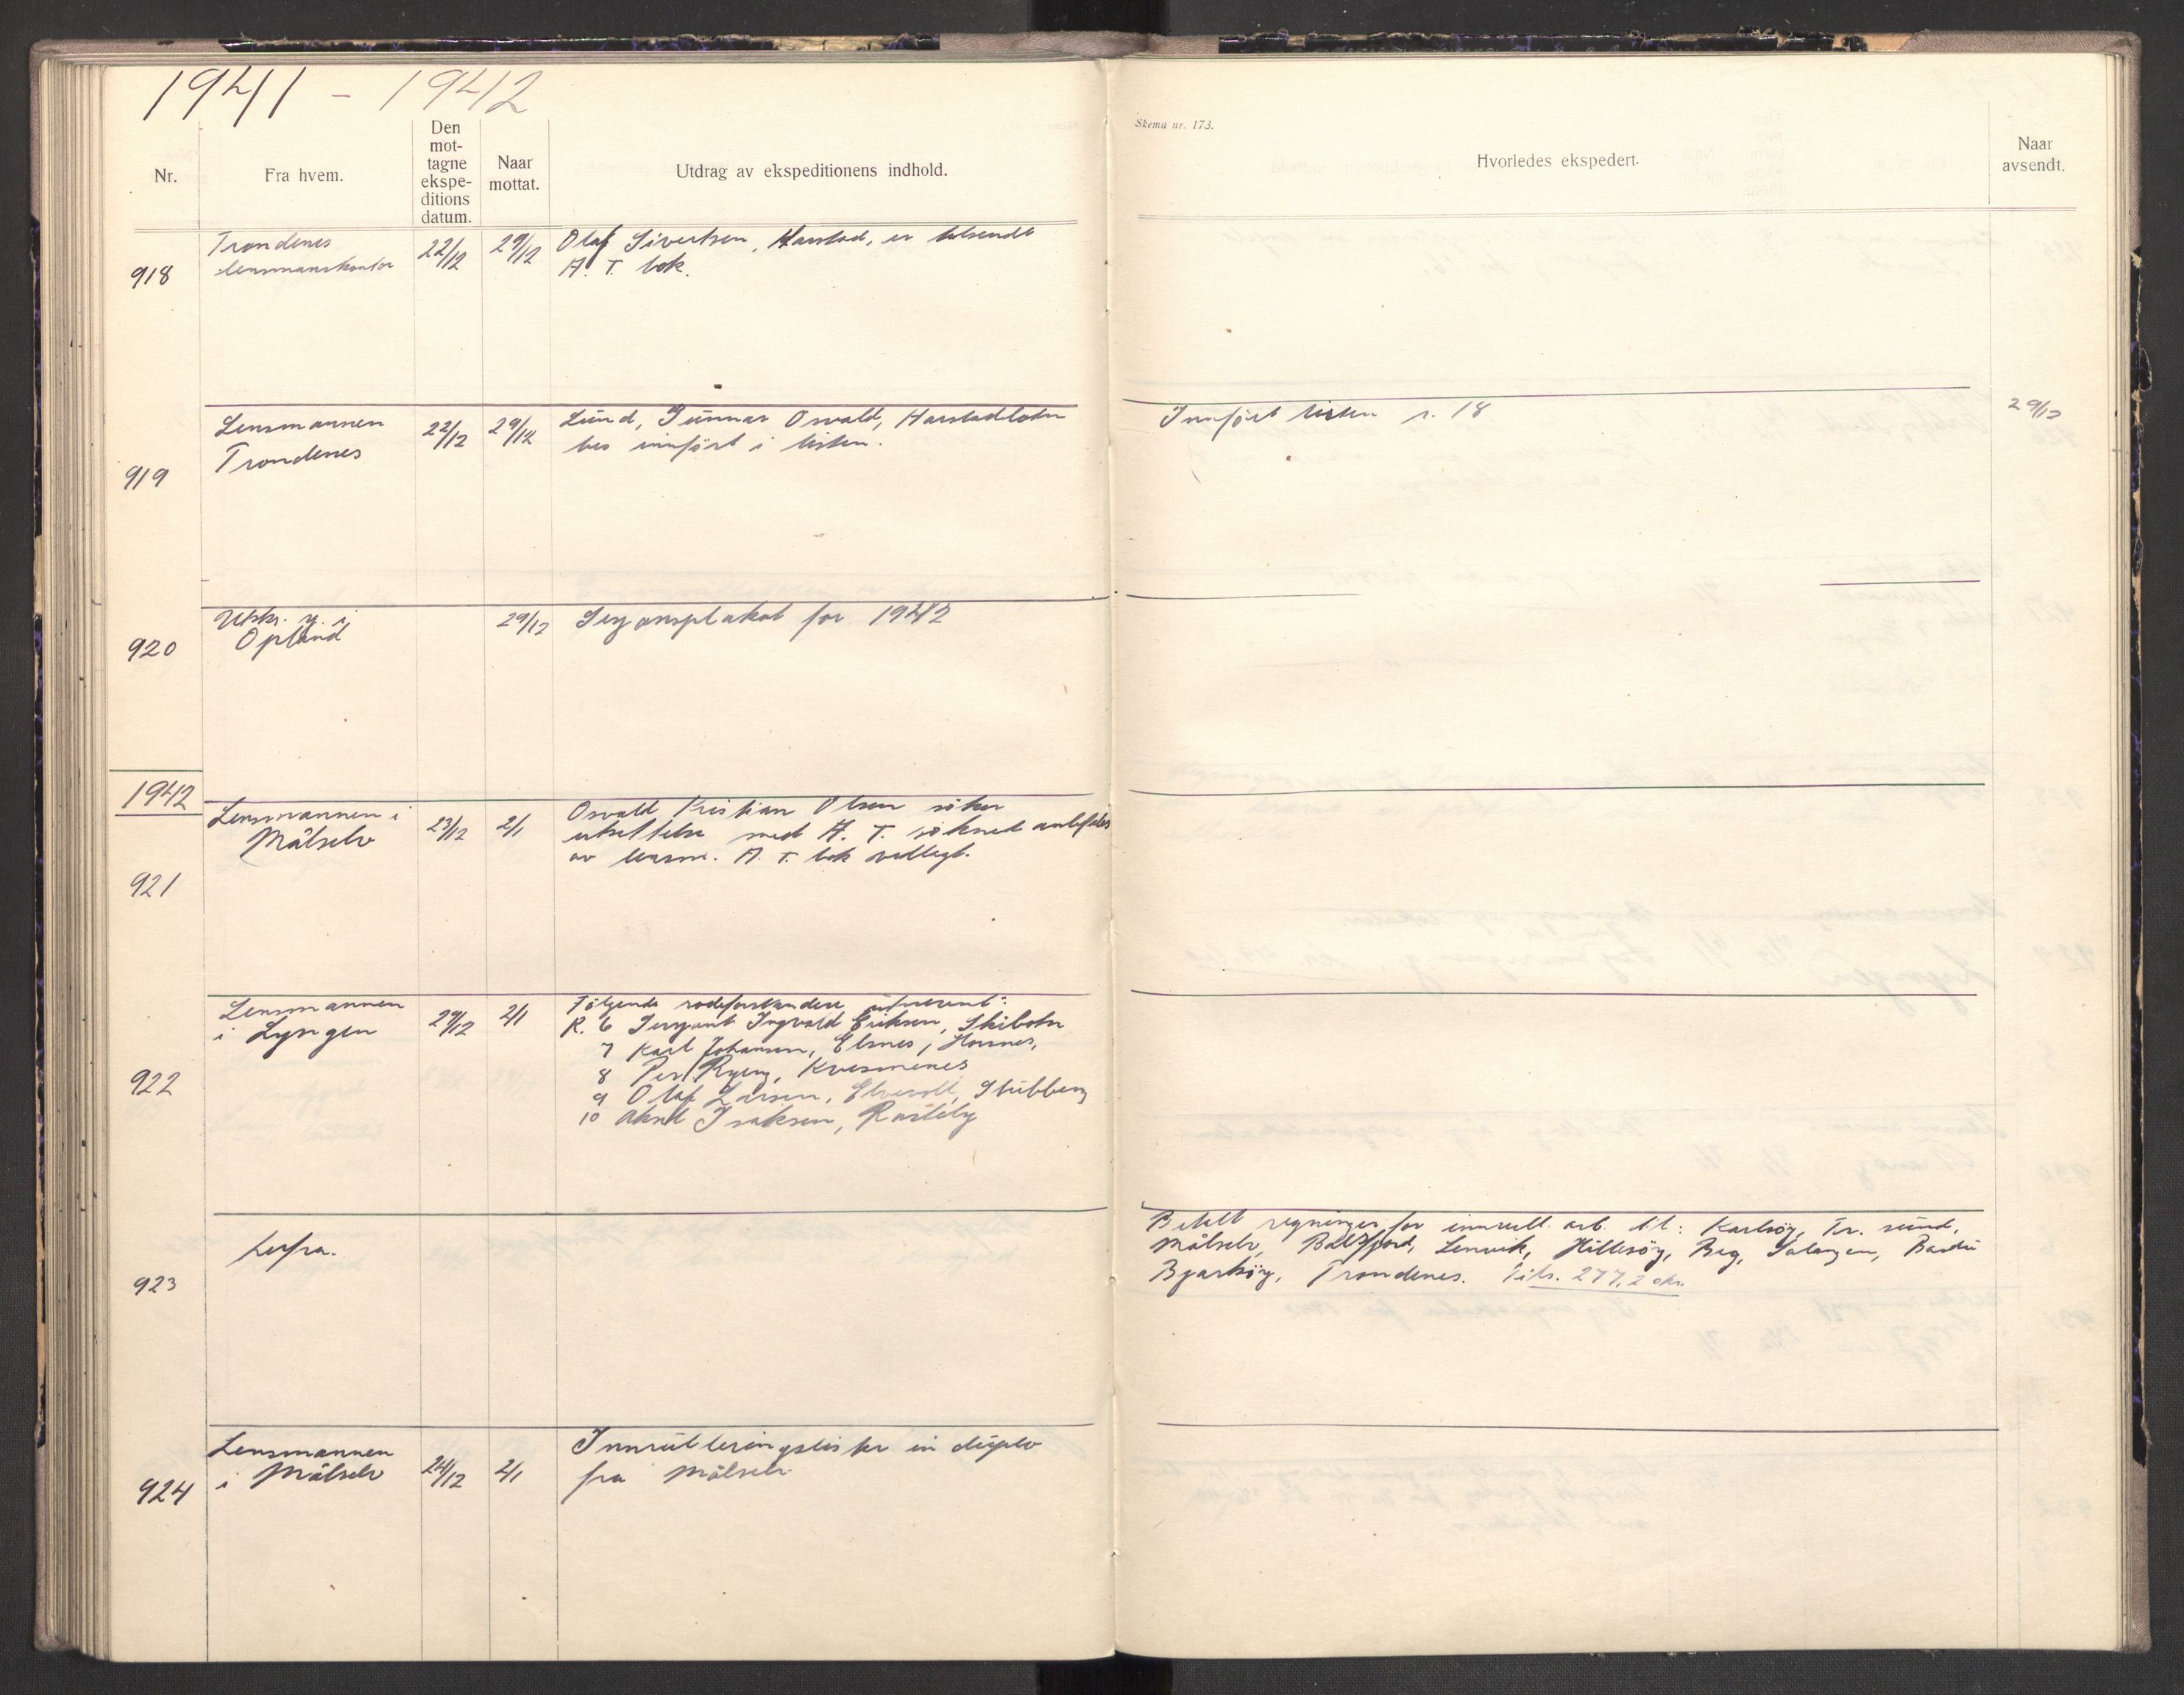 1941 - 1942
Skema nr. 173.
Nr.
Fra hvem.
Den mot-tagne ekspe-ditions datum.
Naar mottat.
Utdrag av ekspeditionens indhold.
Hvorledes ekspedert.
Naar avsendt.
918
Trondenes
lensmannskontor
22/12
29/12
Olaf Sivertsen, Harstad, er tilsendt
A. T. bok.
919
Lensmannen
Trondenes
22/12
29/12
Lund, Gunnar Osvald, Harstadbotn
bes innfört i listen.
Innfört listen s. 18
29/12
920
Utskr. g. i
Opland
29/12
Sesjonsplakat for 1942
1942
921
Lensmannen i
Målselv
23/12
2/1
Osvald Kristian Olsen söker
utsettelse med A. T. söknad anbefales
av lensm. A. T. bok vedlagt.
922
Lensmannen
i Lyngen
29/12
2/1
Fölgende rodeforstandere utnevnt:
R. 6 Sersjant Ingvald Eriksen, Skibotn
7 Karl Johansen, Elsnes, Horsnes,
8 Per Ryeng, Kvesmenes
9 Olaf Larsen, Elvevoll, Stubbeng
10 Isaksen, Rasteby
923
herfra.
Betalt regninger for innrull. arb. til: Karlsöy, Tr. sund,
Målselv, Balsfjord, Lenvik, Hillesöy, Berg, Salangen, Bardu
Bjarköy, Trondenes. Tils. 277,
924
Lensmannen
i Målselv
24/12
2/1
Innrulleringslister in duplo
fra Målselv